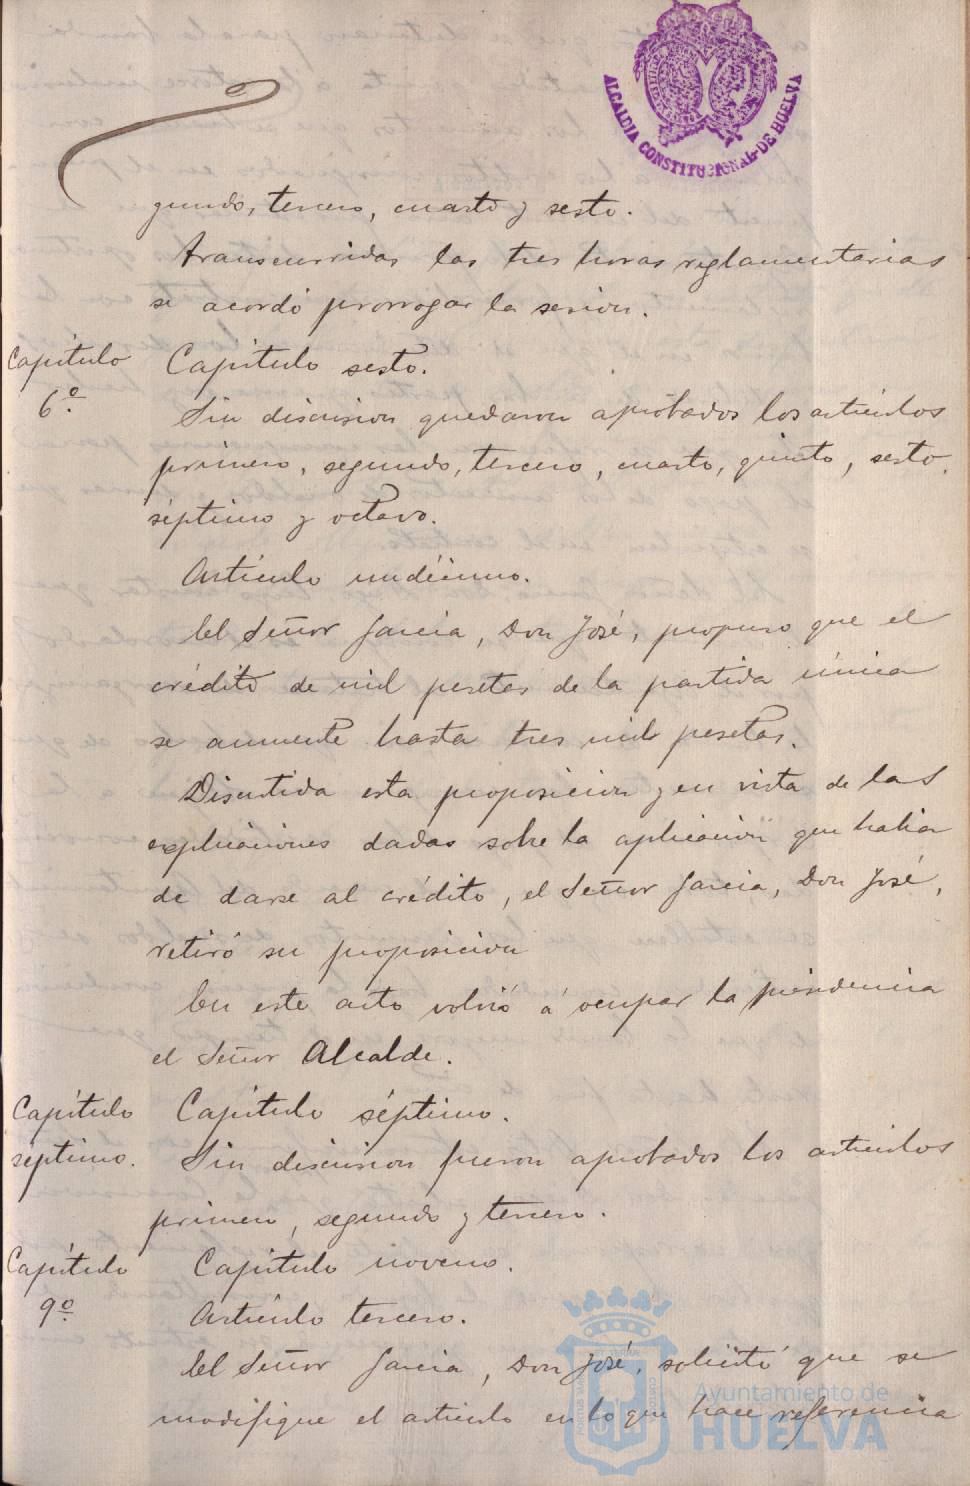 ALCALDIA CONSTITUCIONAL DE HUELVA
gundo, tercero, cuarto y sesto.
Transcurridas las tres horas reglamentarias
se acordó prorrogar la sesion.
Capítulo
6º
Capítulo sesto.
Sin discusion quedaron aprobados los artículos
primero, segundo, tercero, cuarto, quinto, sesto,
séptimo y octavo.
Artículo undécimo.
El Señor García, Don José, propuso que el
crédito de mil pesetas de la partida única
se aumente hasta tres mil pesetas.
Discutida esta proposicion y en vista de las
esplicaciones dadas sobre la aplicación que habia
de darse al crédito, el Señor García, Don José,
retiró su proposicion
En este acto volvió á ocupar la presidencia
el Señor Alcalde.
Capítulo
séptimo.
Capítulo séptimo.
Sin discusion fueron aprobados los artículos
primero, segundo y tercero.
Capítulo
9º
Capítulo noveno.
Artículo tercero.
El Señor García, Don José, solicitó que se
modifique el artículo en lo que hace referencia
Ayuntamiento de
HUELVA